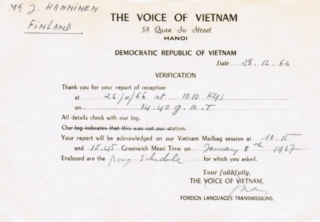 Mr J. HANNINEN
FINLAND
THE VOICE OF VIETNAM
58 Quan Su Street
HANOI
DEMOCRATIC REPUBLIC OF VIETNAM
Date 28.12.66
VERIFICATION
Thank you for your report of reception
at 26/11/66 at 1010 Kgs
on 14.40 g.m.T
All details check with our log.
Our log indicates that this was not our station.
Your report will be acknowledged on our Vietnam Mailbag session at 10.15
and 15.45 Greenwich Mean Time on January 8th 1967
Enclosed are the prog. Schedule for which you asked.
Your faithfully,
THE VOICE OF VIETNAM,
FOREIGN LANGUAGES TRANSMISSIONS.